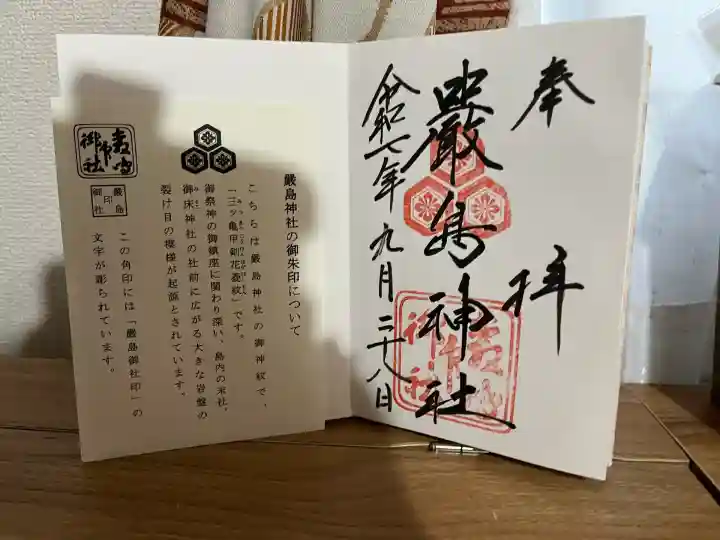 奉拝
嚴島神社
令和七年九月二十八日
嚴島神社の御朱印について
こちらは嚴島神社の御神紋で、
「三ツ亀甲剣花菱紋」です。
御祭神の御鎮座に関わり深い、島内の末社、
御床神社の社前に広がる大きな岩盤の
裂け目の模様が起源とされています。
嚴島
御社印
この角印には「嚴島御社印」の
文字が彫られています。